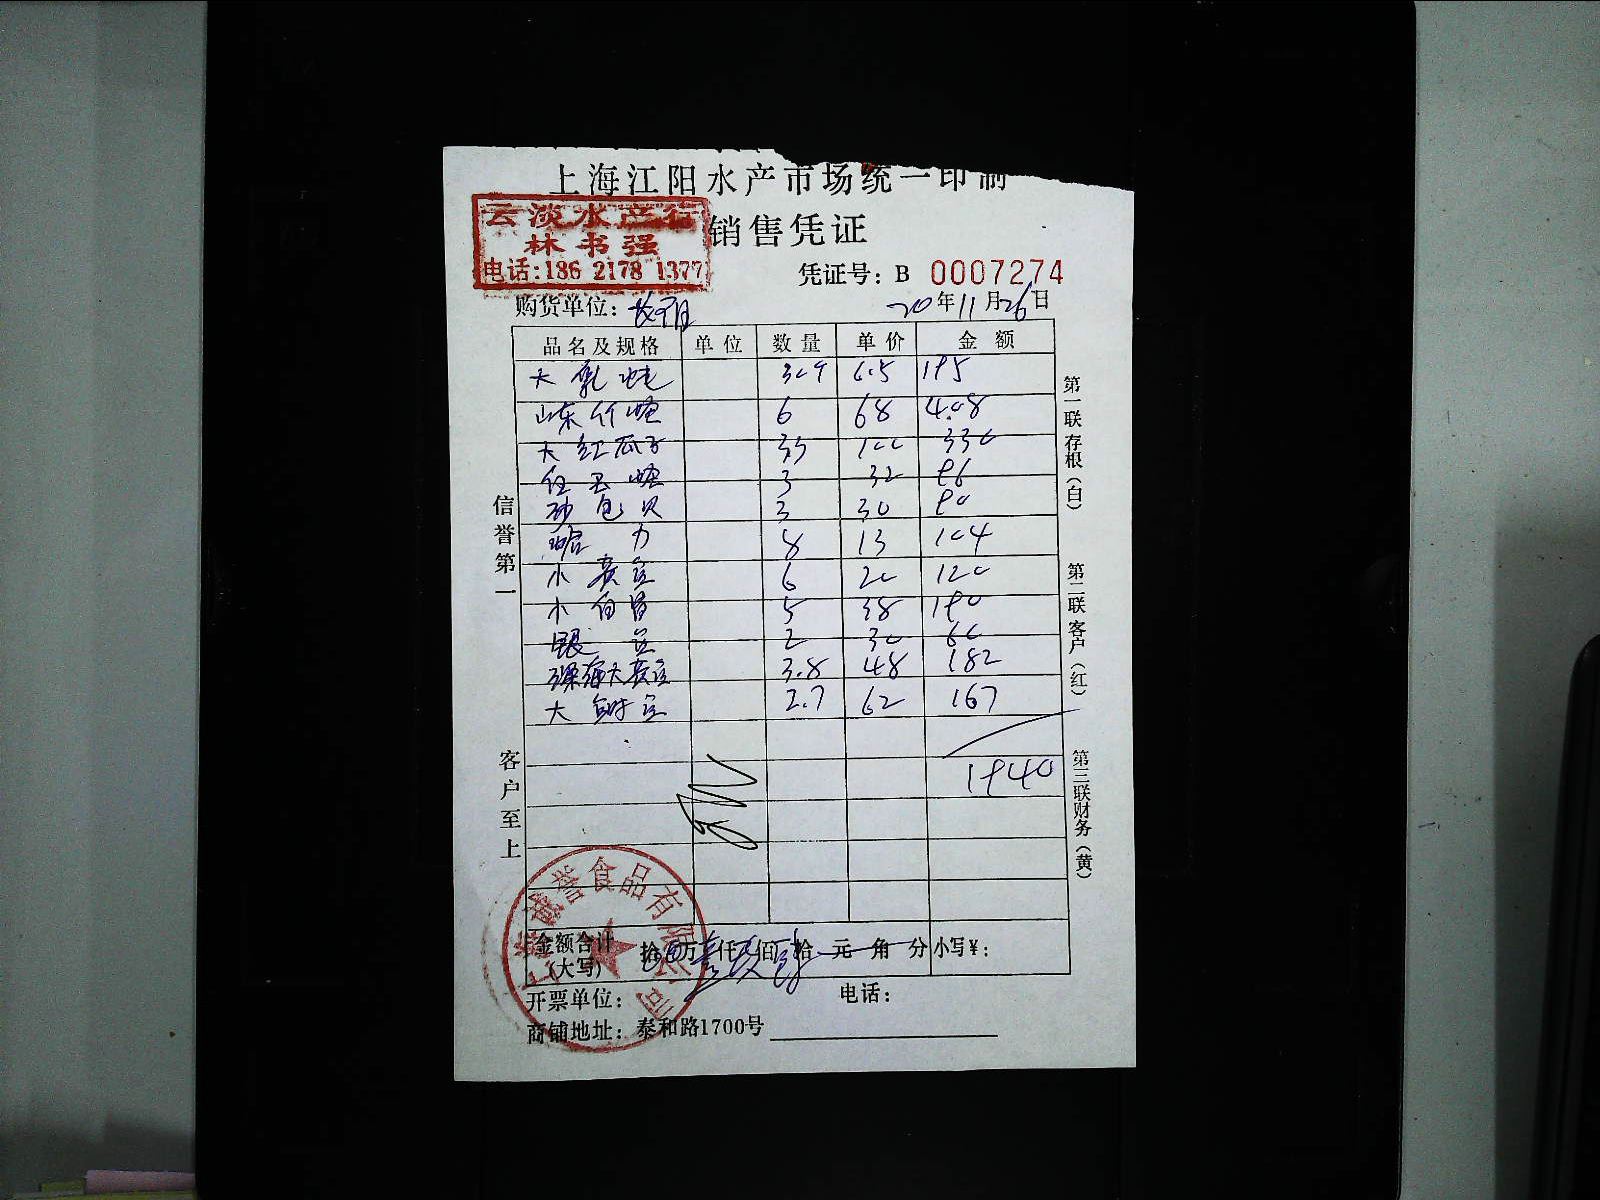 上海江阳水产市场统一印制
云淡水产行
林书强
电话:186 2178 1377
销售凭证
凭证号: B 0007274
购货单位:
20年11月26日
品名及规格 单位 数量 单价 金额
大 6.5 195
山东竹蛏 6 68 408
大红瓜子 100 330
蛏 3 32 96
砂包贝 3 30 90
8 13 104
小 6 20 120
小 5 38 190
2 30 60
大 3.8 48 182
大 2.7 62 167
1940
信誉第一
客户至上
第一联存根(白)
第二联客户(红)
第三联财务(黄)
誉食品有限公司
金额合计(大写) 拾 万 仟 佰 拾 元 角 分 小写¥:
开票单位: 电话:
商铺地址: 泰和路1700号